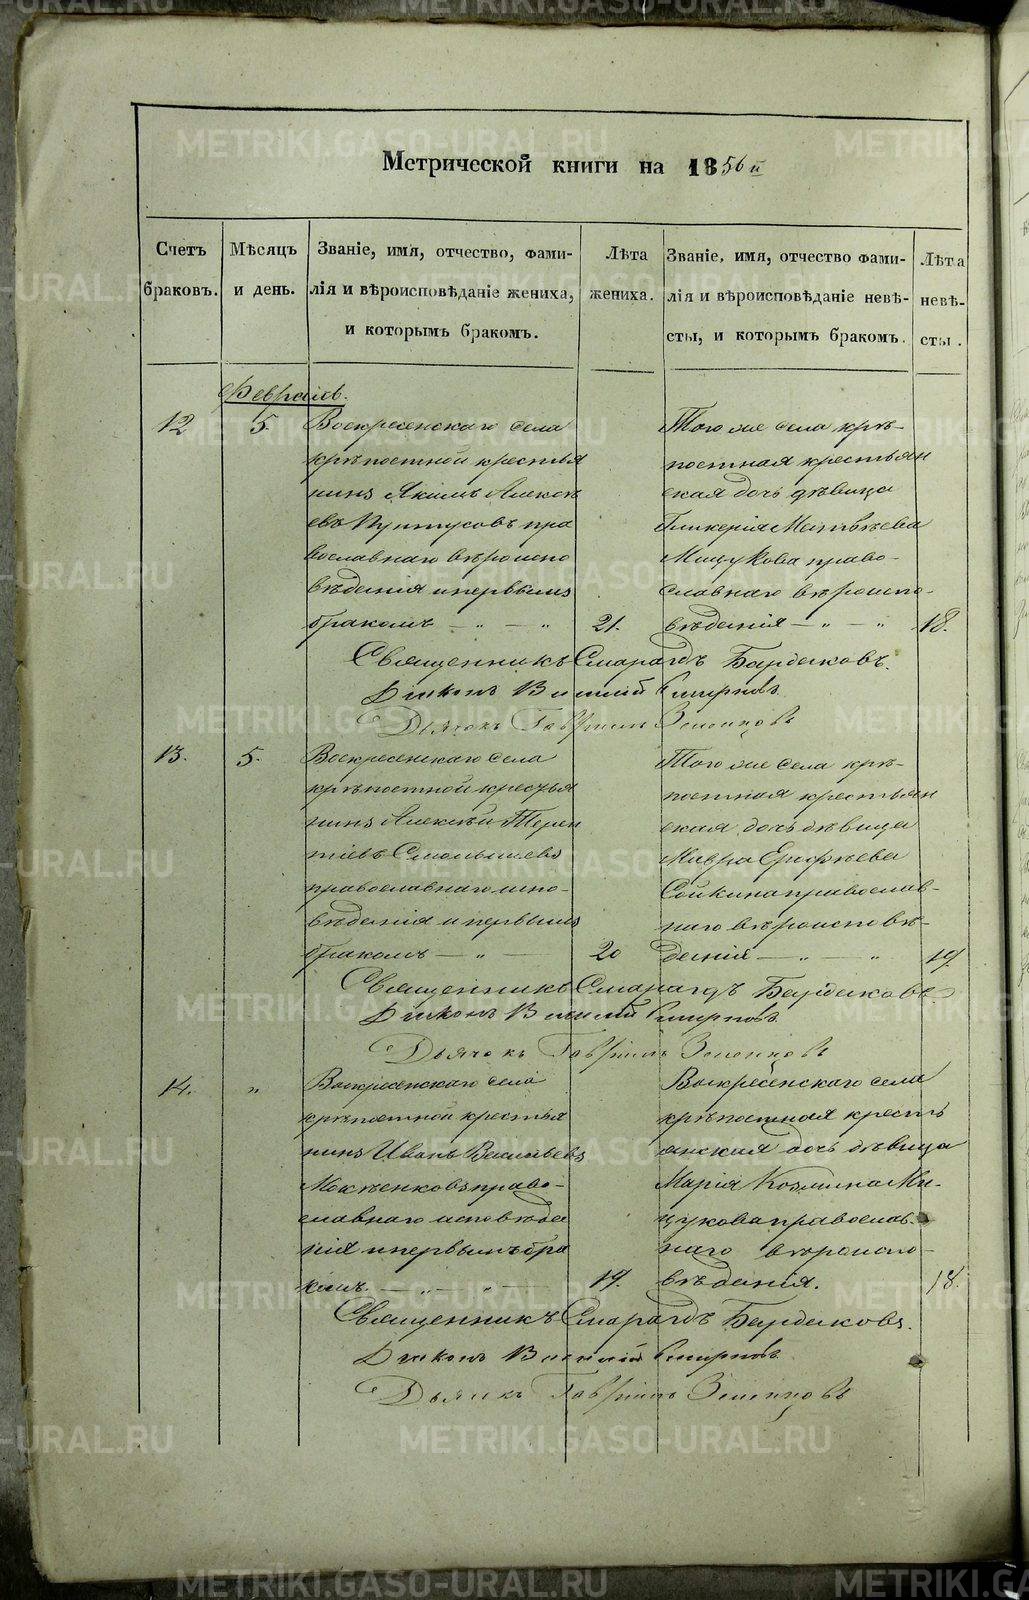 Метрической книги на 1856й
Счетъ браковъ.
Мѣсяцъ и день.
Званіе, имя, отчество, фами-
лія и вѣроисповѣданіе жениха,
и которымъ бракомъ.
Лѣта жениха.
Званіе, имя, отчество фами-
лія и вѣроисповѣданіе невѣ-
сты, и которымъ бракомъ.
Лѣта невѣ-
сты.
Февраль.
12
5.
Воскресенскаго села
крѣпостной крестья
нинъ Якимъ Алексѣ
евъ православнаго
вѣроиспо
вѣданія и первымъ
бракомъ — „ — „
21.
Того же села крѣ-
постная крестьян
ская дочь дѣвица
Гликерія Матвѣева
Мицукова право-
славнаго вѣроиспо-
вѣданія — „ — „
18.
Священникъ Смарагдъ Бардаковъ.
Діаконъ Василій Смирновъ
Дьячокъ Гавріилъ Зеленцовъ
13.
5.
Воскресенскаго села
крѣпостной крестья
нинъ Алексѣй Терен
тіевъ
православнаго испо-
вѣданія и первымъ
бракомъ — „ —
20
Того же села крѣ-
постная крестьян
ская дочь дѣвица
Мавра Ерофѣева
Сойкина православ-
наго вѣроисповѣ-
данія — „ — „
19.
Священникъ Смарагдъ Бардаковъ.
Діаконъ Василій Смирновъ
Дьячокъ Гавріилъ Зеленцовъ
14.
„
Воскресенскаго села
крѣпостной крестья
нинъ Иванъ Васильевъ
Мокѣенковъ право-
славнаго исповѣда
нія и первымъ бра
комъ. — „ — „ —
19.
Воскресенскаго села
крѣпостная кресть
янская дочь дѣвица
Марія Козмина Ми-
цукова православ-
наго вѣроиспо-
вѣданія.
18.
Священникъ Смарагдъ Бардаковъ.
Діаконъ Василій Смирновъ
Дьячокъ Гавріилъ Зеленцовъ
METRIKI.GASO-URAL.RU